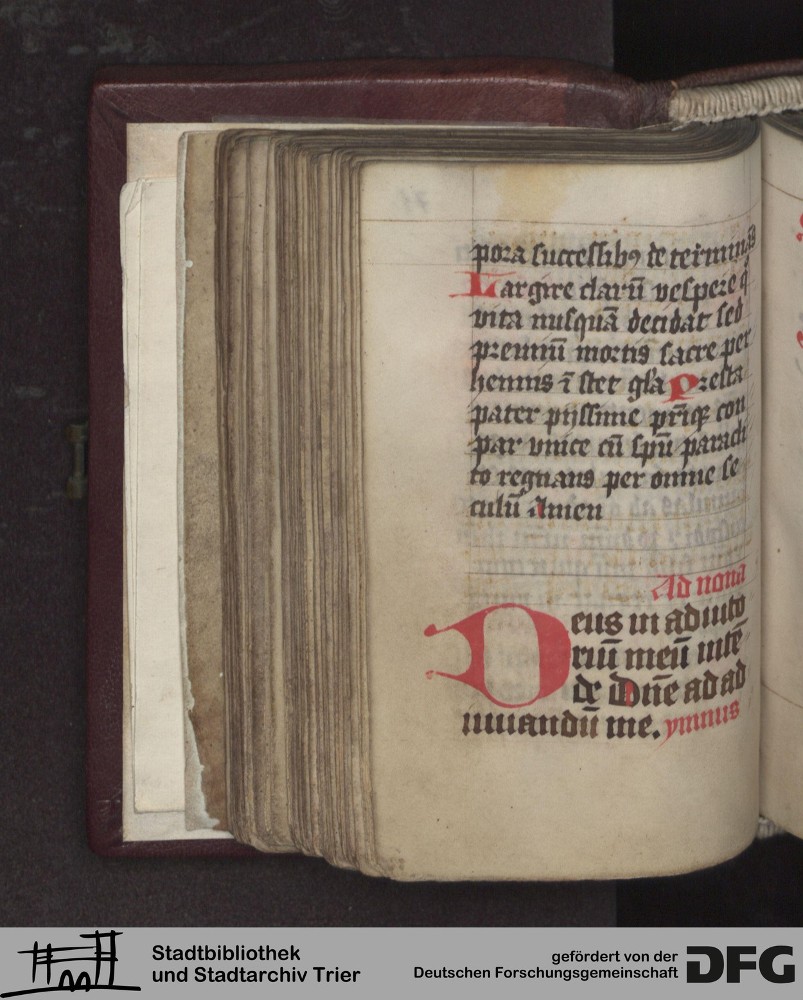 pora successibꝯ determinās
Largire clarū vespere q̄
vita nusquā decidat sed
premiū mortis sacre per
hennis ī stet gl'a Presta
pater pijssime pr̄iqꝫ com
par vnice cū spū paracli
to regnans per omne se
culū Amen
Ad nona
Deus in adiuto
riū meū intē
de Dn̄e ad ad
iuuandū me. ymnus
Stadtbibliothek
und Stadtarchiv Trier
gefördert von der
Deutschen Forschungsgemeinschaft
DFG